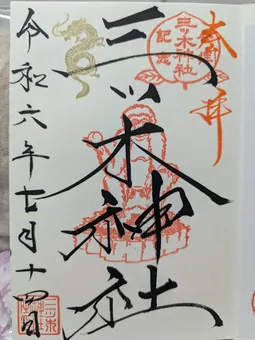 奉拝
三ッ木神社
記念
三ッ木神社
令和六年七月十四日